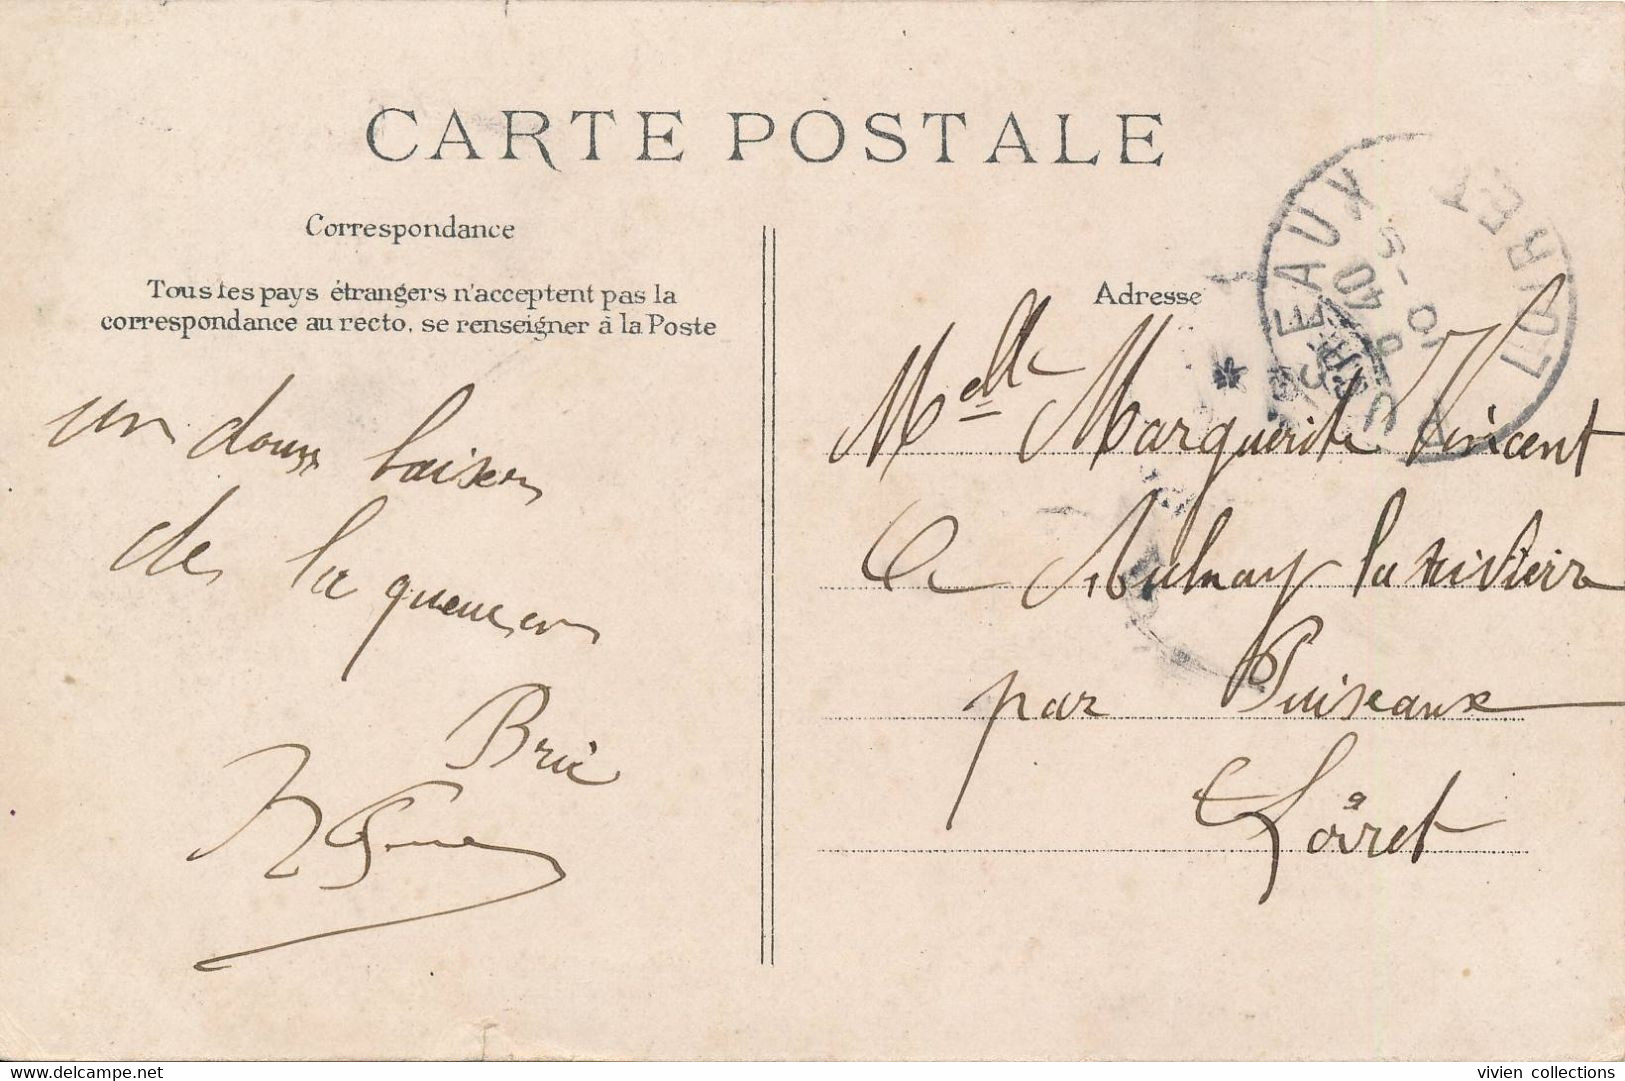 CARTE POSTALE
Correspondance
Tous les pays étrangers n'acceptent pas la
correspondance au recto, se renseigner à la Poste
un doux baiser
de la
Adresse
PUISEAUX
LOIRET
Melle Marguerite Vincent
a Aulnay la rivière
par Puiseaux
Loiret
www.delcampe.net
vivien collections